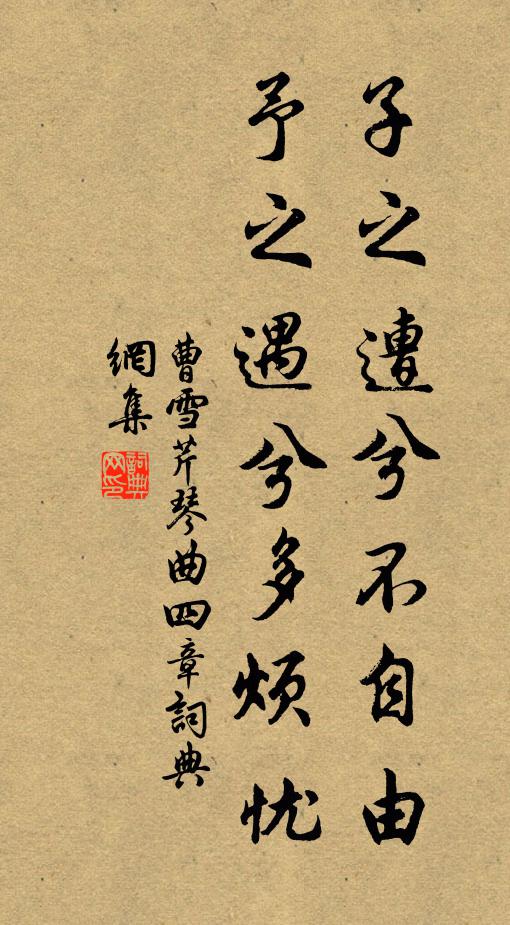 子之遭兮不自由
予之遇兮多烦忧
曹雪芹琴曲四章詞典
網集
詞典網印